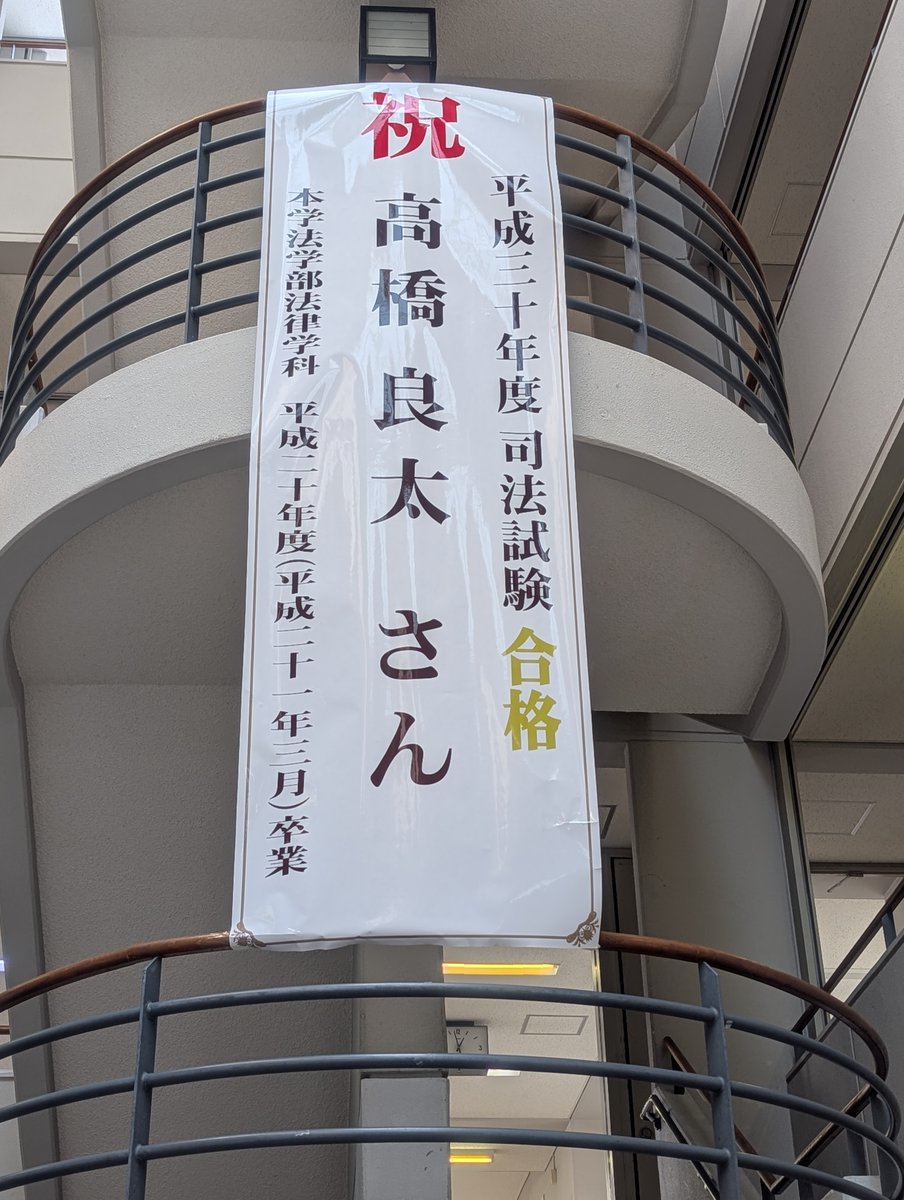 祝
平成三十年度 司法試験 合格
高橋良太 さん
本学法学部法律学科 平成二十年度(平成二十一年三月)卒業